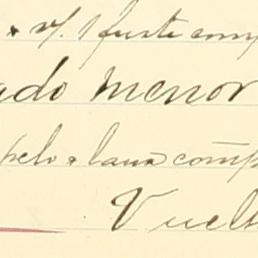 1 fuste comp
ado menor
pelo o lana comp
Vuelt